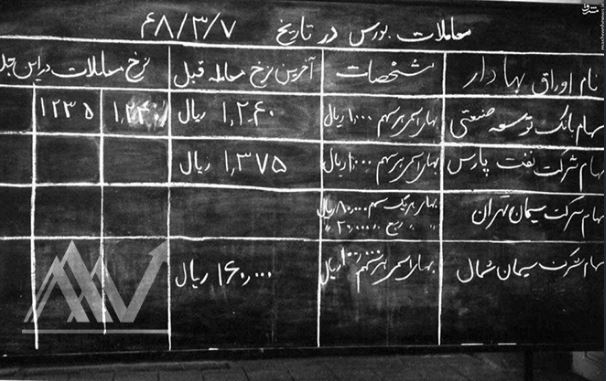 معاملات بورس در تاریخ ۴۸/۳/۷
نام اوراق بهادار مشخصات آخرین نرخ معامله قبل نرخ معاملات در این جلسه
سهام بانک توسعه صنعتی بهای اسمی هر سهم ۱,۰۰۰ ریال ۱,۲۴۰ ریال ۱,۲۴۰ ۱۲۳۵
سهام شرکت نفت پارس بهای اسمی هر سهم ۱,۰۰۰ ریال ۱,۳۷۵ ریال
سهام شرکت سیمان تهران بهای هر یک سهم ۸۰,۰۰۰ ریال
" " ربع " ۲۰,۰۰۰ "
سهام شرکت سیمان شمال بهای اسمی هر سهم ۱۰۰,۰۰۰ ریال ۱۶۰,۰۰۰ ریال